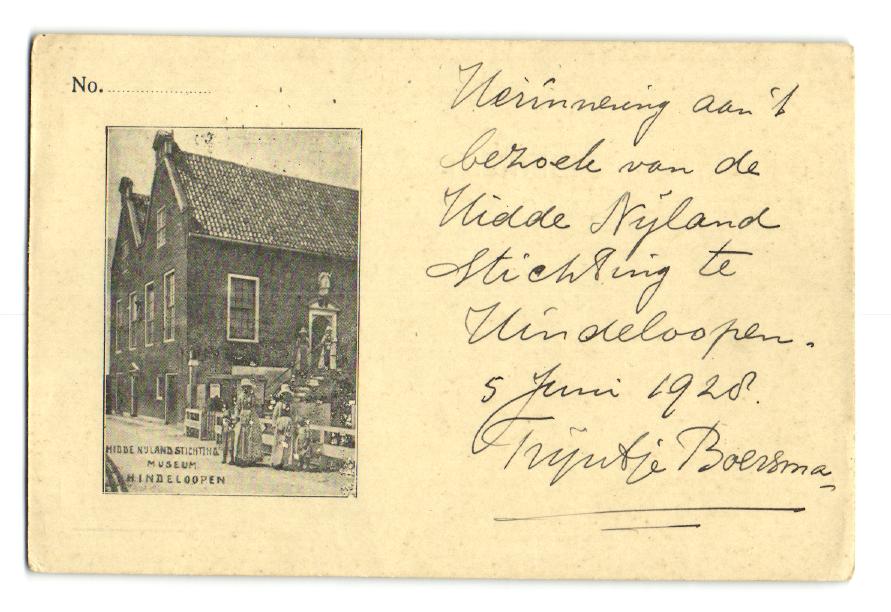 No.
HIDDE NIJLAND STICHTING
MUSEUM
HINDELOOPEN
Herinnering aan 't
bezoek van de
Hidde Nijland
Stichting te
Hindeloopen.
5 Juni 1928.
Trijntje Boersma